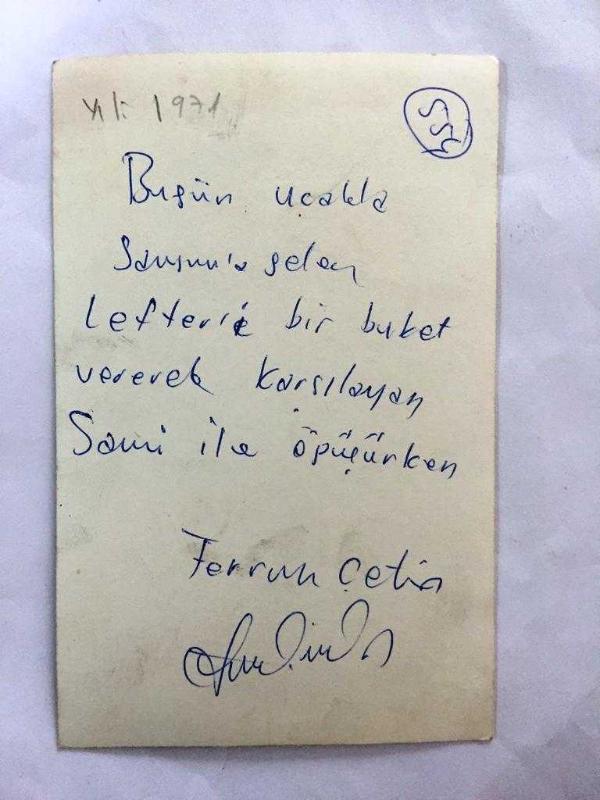 Yıl: 1971
Bugün uçakla
Samsun'a gelen
Lefter'i bir buket
vererek karşılayan
Sami ile öpüşürken
Ferruh Çetin